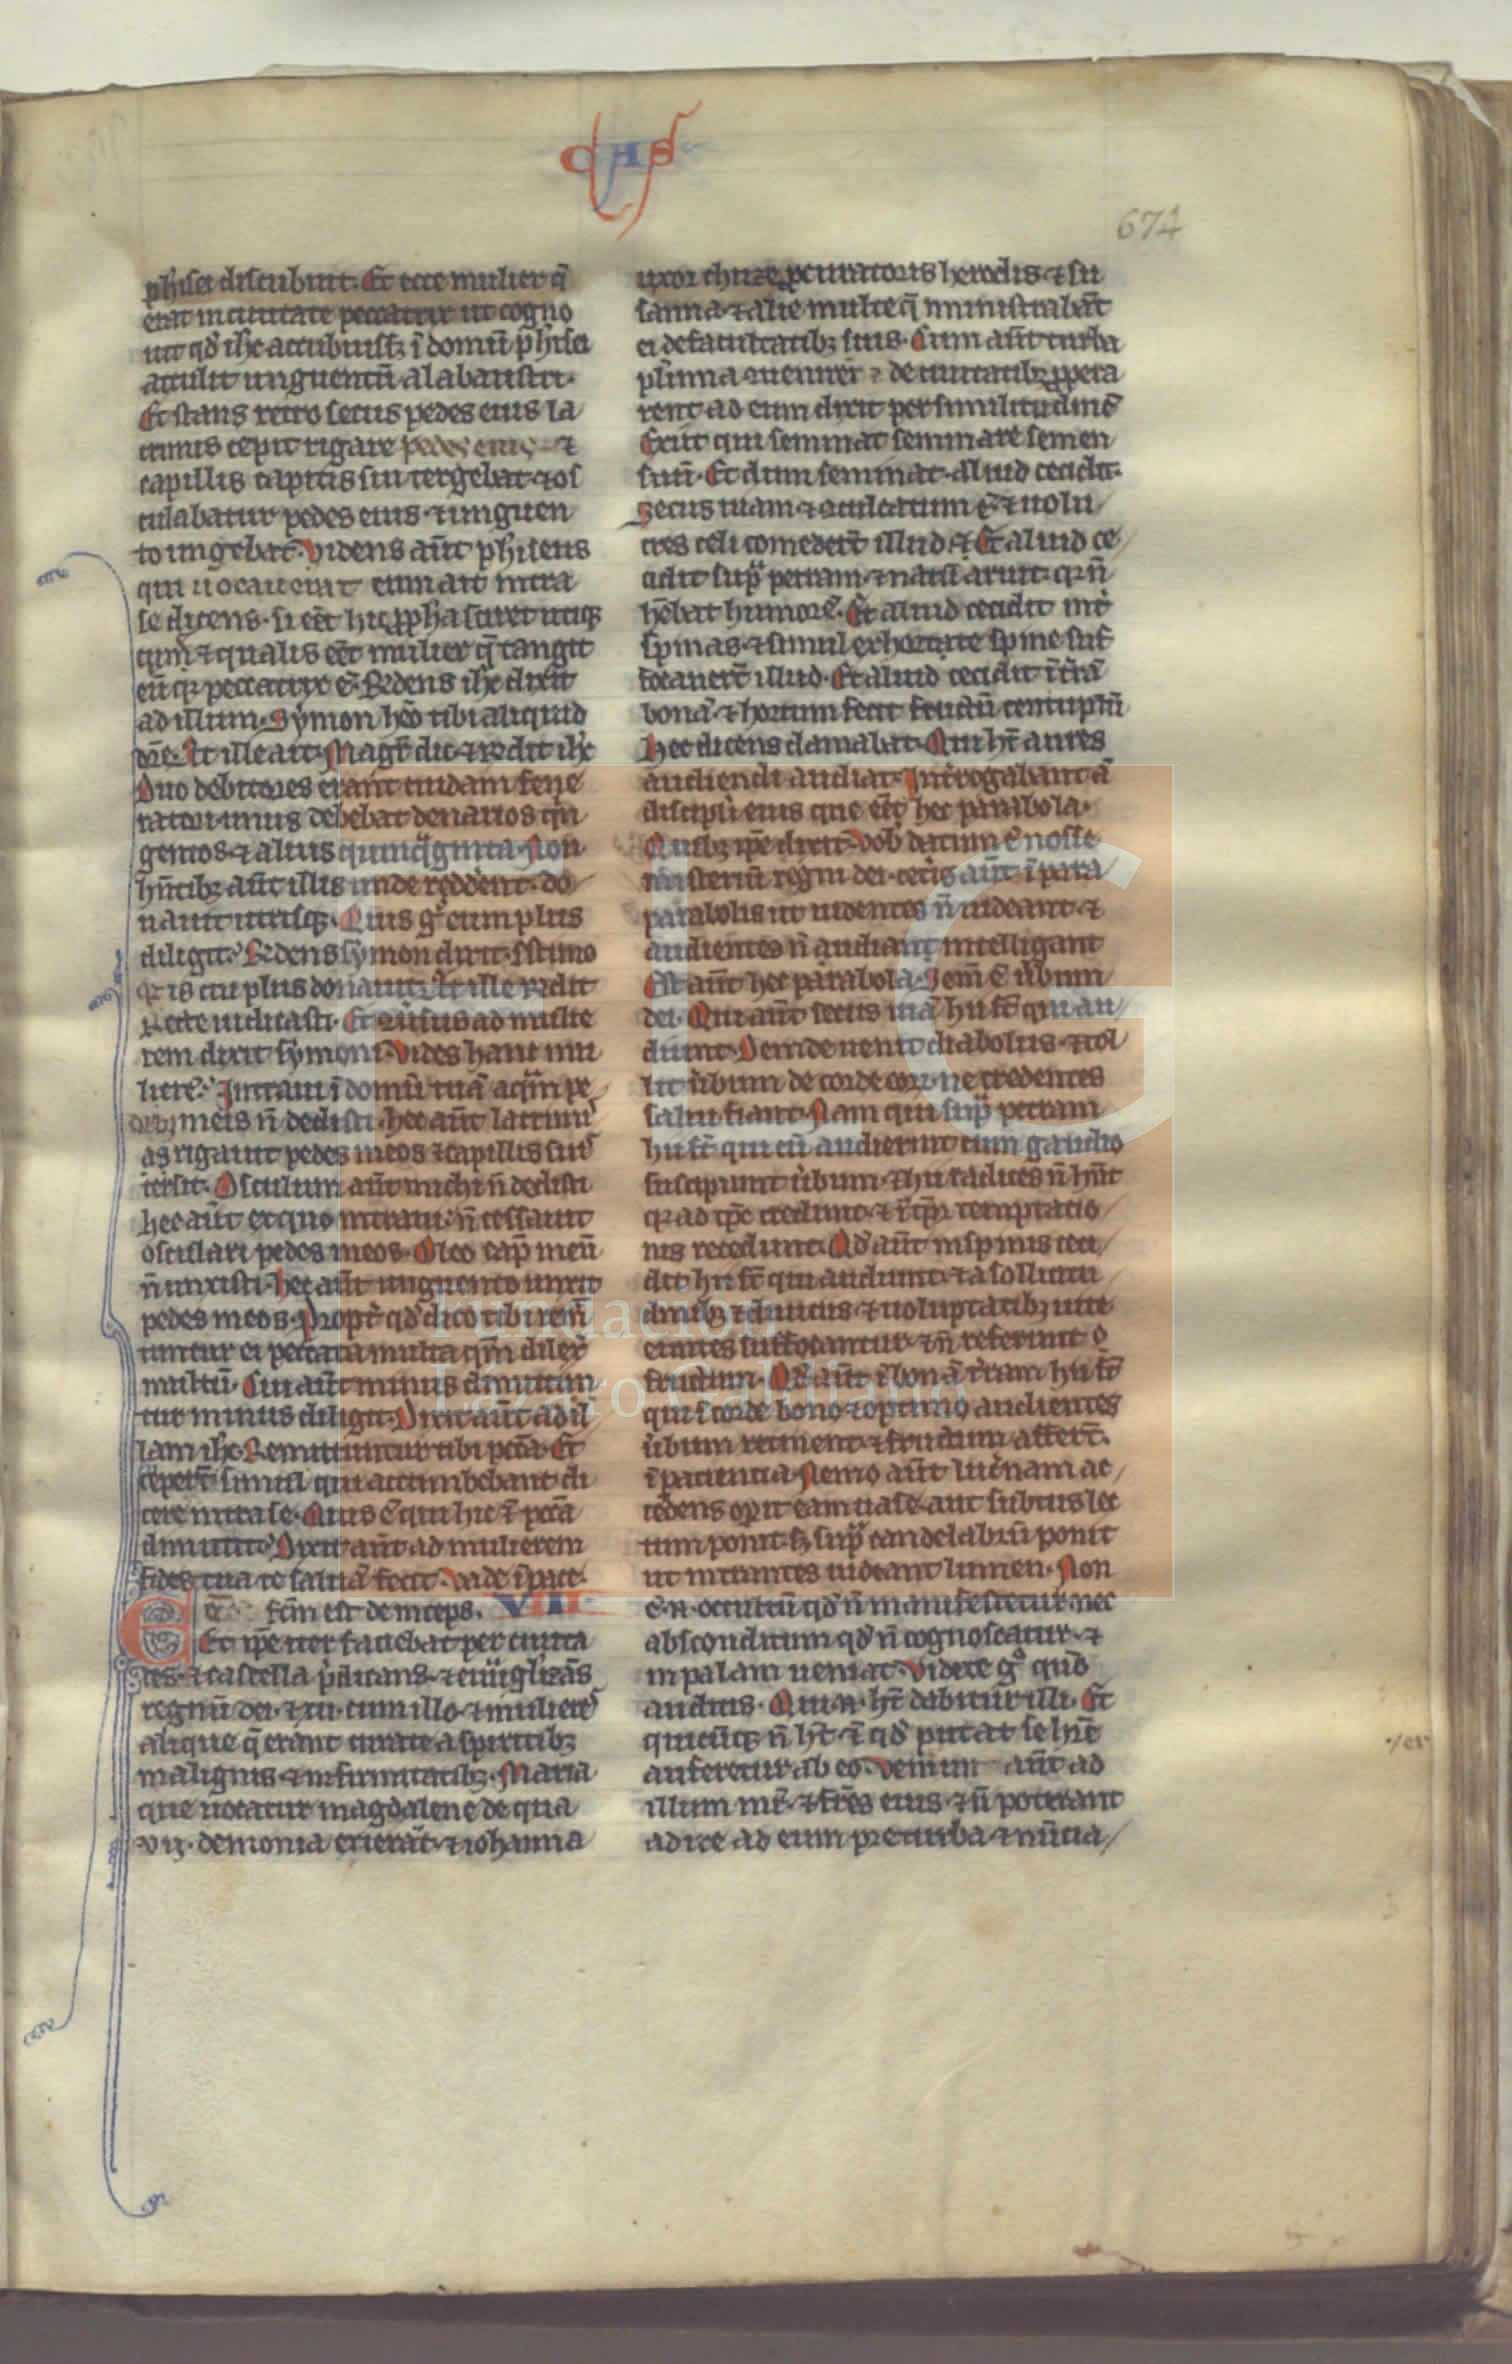 CHS
674
phisei discubuit. Et ecce mulier q̄
erat in ciuitate peccatrix ut cogno
uit qd̄ ihc accubuissꝫ ī domū phisei
attulit unguentū alabaustri.
Et stans retro secus pedes eius la
crimis cepit rigare pedes eius ⁊
capillis capitis sui tergebat ⁊ os
culabatur pedes eius ⁊ unguen
to ungebat. Videns aūt phiseus
qui uocauerat eum ait intra
se dicens. si eēt hic ꝓpha sciret utiqꝫ
que ⁊ qualis eēt mulier q̄ tangit
eū qꝛ peccatrix ē. Rndens ihc dixit
ad illum. Symon heo tibi aliquid
dic̄e. At ille ait. Magr̄ dic. ⁊ rn̄dit ihc
Duo debitores erant cuidam fene
ratori. unus debebat denarios qn
gentos. ⁊ alius quinq̄ginta. Non
hn̄tibꝫ aūt illis unde redderent. do
nauit utrisqꝫ. Quis gͦ eum plus
diligit? Rn̄dens symon dixit. Estimo
qꝛ is cui plus donauit. At ille rn̄dit
Recte iudicasti. Et uersus ad mulie
rem dixit symoni. Vides hanc mu
lierē? Intraui ī domū tuā aquam pe
dibꝫ meis n̄ dedisti. hec aūt lacrimis
as rigauit pedes meos ⁊ capillis suis
tersit. Osculum aūt michi n̄ dedisti
hec aūt ex quo intraui n̄ cessauit
osculari pedes meos. Oleo cap̄ meū
n̄ unxisti. hec aūt unguento unxit
pedes meos. Propt̄ qd̄ dico tibi remit
tuntur ei peccata multa qm̄ dilex̄
multū. Cui aūt minus dimitti
tur minus diligit. Dixit aūt ad il
lam ihc. Remittuntur tibi pctā. Et
ceperūt simul qui accumbebant di
cere intra se. Quis ē qui hic ē pctā
dimittit? Dixit aūt ad mulierem
fides tua te saluā fecit. Vade ī pace.
ē fcm̄ est deinceps. VIII
Et ip̄e iter faciebat per ciuita
tes. ⁊ castella p̄dicans ⁊ euuāglizās
regnū dei. ⁊ xii. cum illo. ⁊ mulieres
alique q̄ erant curate a spiritibꝫ
malignis. ⁊ infirmitatibꝫ. Maria
que uocatur magdalene de qua
vij. demonia exierāt. ⁊ iohanna
uxor chuze ꝓcuratoris herodis. ⁊ su
sanna. ⁊ alie multe q̄ ministrabāt
ei de facultatibꝫ suis. Cum aūt turba
plurima conueniret ⁊ de ciuitatibꝫ ꝓpera
rent ad eum dixit per similitudinē
Exiit qui seminat seminare semen
suū. Et dum seminat. aliud cecidit.
secus uiam. ⁊ oculcatum ē. ⁊ uolu
cres celi comederūt illud. Et aliud ce
cidit sup̄ petram. ⁊ natū aruit. qꝛ n̄
hēbat humorē. Et aliud cecidit int̄
spinas. ⁊ simul exhorte spine suf
focauert̄ illud. Et aliud cecidit ī tr̄ā
bonā. ⁊ hortum fecit fructū centuplū
Hec dicens clamabat. Qui ht̄ aures
audiendi audiat. Interrogabant ā
discipuli eius que eēt hec parabola.
Quibꝫ ip̄e dixit. Vob̄ datum ē nosse
misteriū regni dei. ceteris aūt ī para
parabolis ut uidentes n̄ uideant. ⁊
audientes n̄ audiant intelligant
Est aūt hec parabola. Sem̄ ē ūbum
dei. Qui aūt secus uiā hii st̄ qui au
diunt. Deinde uenit diabolus. ⁊ tol
lit ūbum de corde eorum ne credentes
salui fiant. Nam qui sup̄ petram
hii st̄ qui cū audierint cum gaudio
suscipiunt ūbum. ⁊ hii radices n̄ hn̄t
qꝛ ad tp̄s credunt. ⁊ ī tp̄r temptatio
nis recedunt. Qd̄ aūt in spinis ceci
dit hii st̄ qui audiunt. ⁊ a sollicitu
dinibꝫ ⁊ diuiciis ⁊ uoluptatibꝫ uite
euntes suffocantur ⁊ n̄ referunt
fructum. Qd̄ aūt ī bonā t̄ram hii st̄
qui ī corde bono ⁊ optimo audientes
ūbum retinent ⁊ fructum afferūt.
ī paciencia. Nemo aūt lucernam ac
cedens operit eam uase aut subtus lec
tum ponit. sꝫ sup̄ candelabrū ponit
ut intrantes uideant lumen. Non
ē n̄ occultū qd̄ n̄ manifestetur. nec
absconditum qd̄ n̄ cognoscatur. ⁊
in palam ueniat. Videte gͦ quō
auditis. Qui n̄ ht̄ dabitur illi. Et
quicūqꝫ n̄ ht̄. ⁊ qd̄ putat se hr̄e
auferetur ab eo. Venerunt aūt ad
illum mr̄. ⁊ fr̄es eius. ⁊ n̄ poterant
adire ad eum pre turba. ⁊ nūtia
Fundación
Lázaro Galdiano